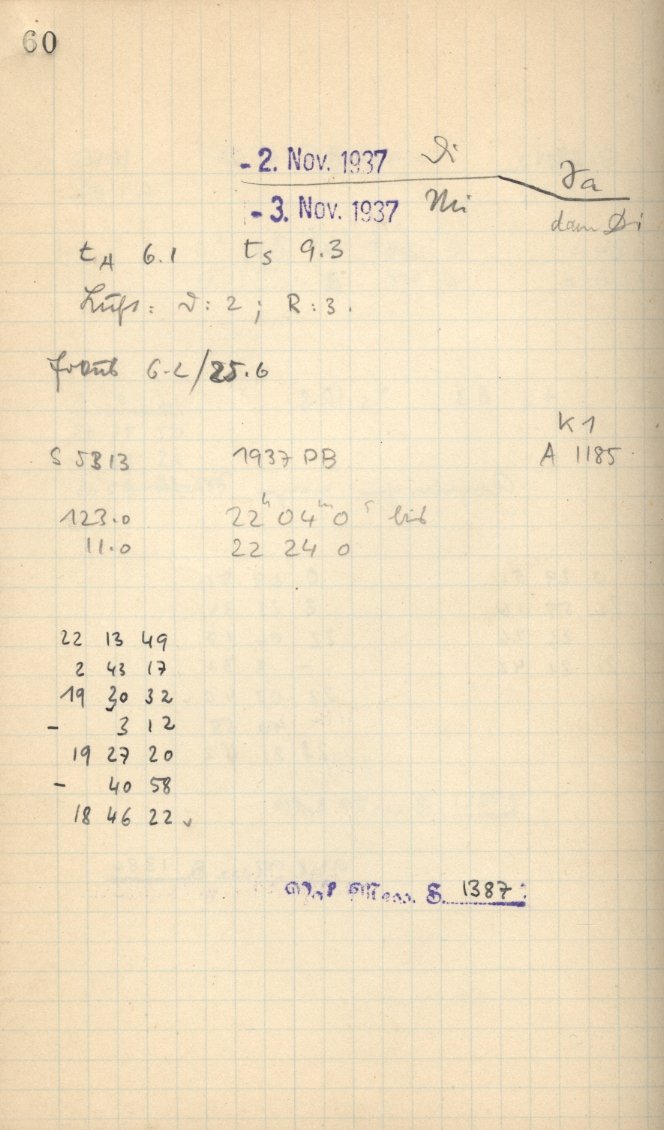 60
- 2. Nov. 1937 Di
Ja
- 3. Nov. 1937 Mi
dann Di
tA 6.1 tS 9.3
Luft: D: 2; R: 3.
6.2/25.6
K 1
S 5313 1937 PB A 1185
123.0 22h 04m 0s bis
11.0 22 24 0
22 13 49
2 43 17
19 30 32
- 3 12
19 27 20
- 40 58
18 46 22 v
Mess. S. 1387